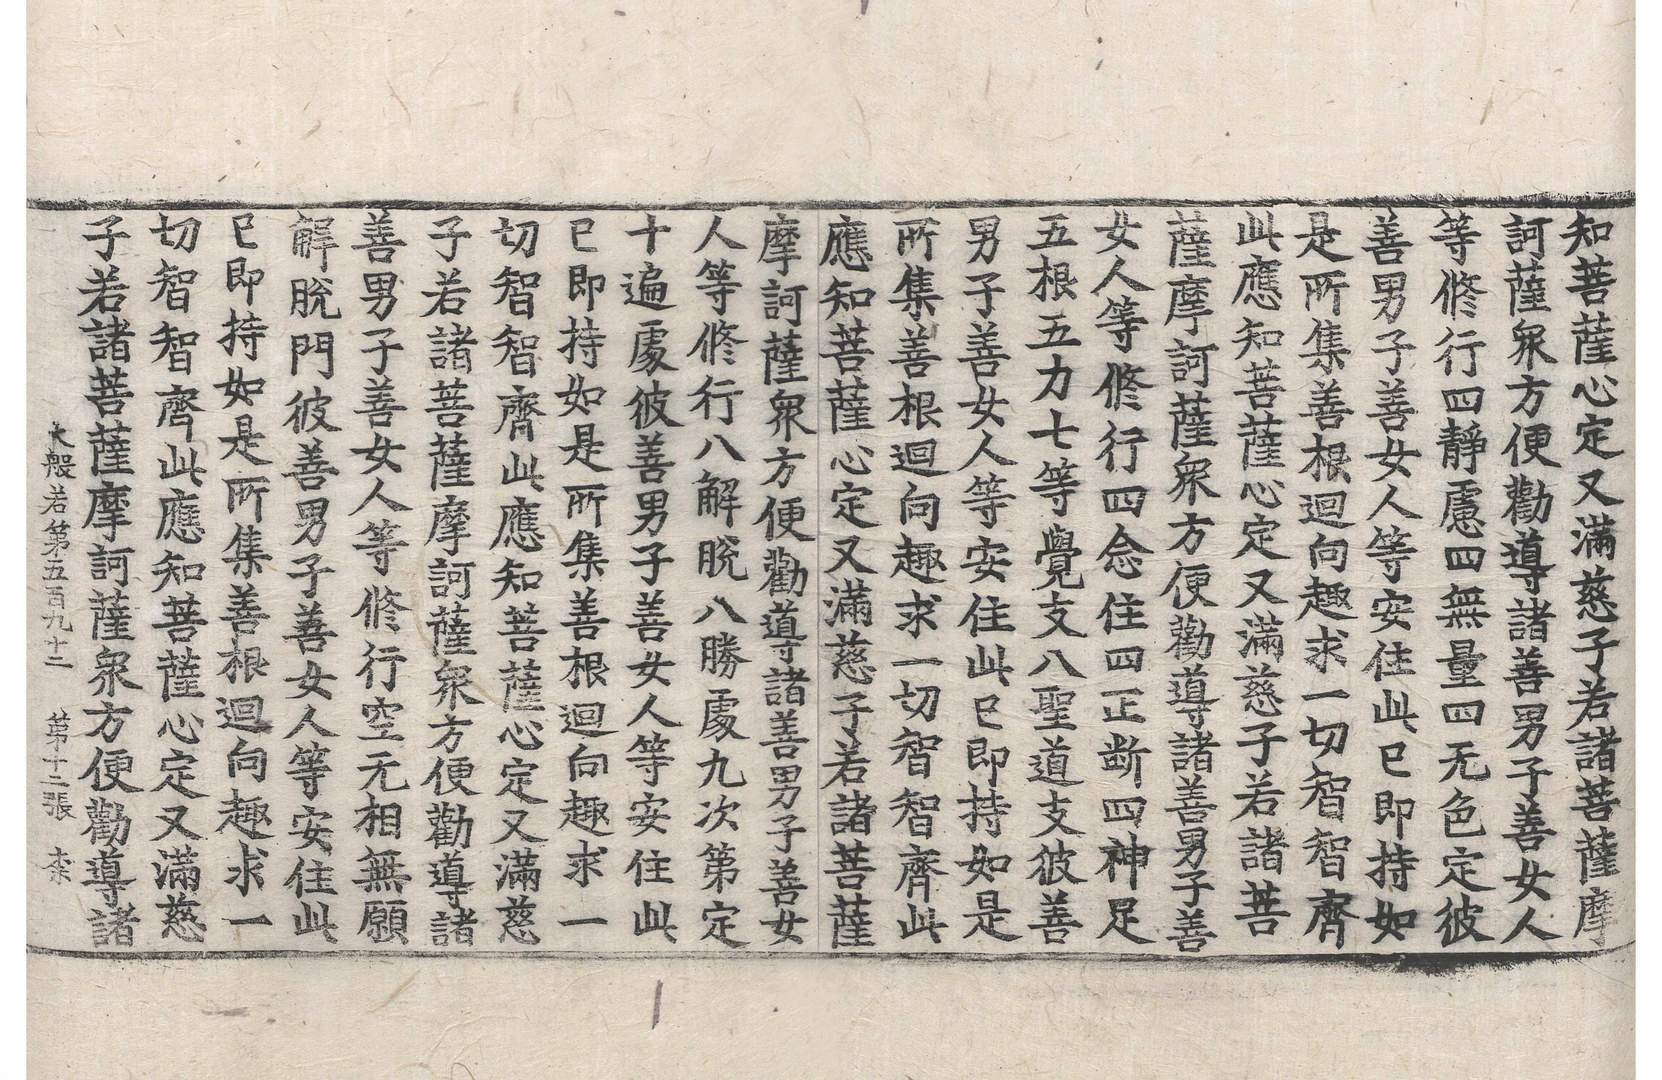 知菩薩心定又滿慈子若諸菩薩摩
訶薩衆方便勸導諸善男子善女人
等修行四靜慮四無量四无色定彼
善男子善女人等安住此已即持如
是所集善根迴向趣求一切智智齊
此應知菩薩心定又滿慈子若諸菩
薩摩訶薩衆方便勸導諸善男子善
女人等修行四念住四正断四神足
五根五力七等覺支八聖道支彼善
男子善女人等安住此已即持如是
所集善根迴向趣求一切智智齊此
應知菩薩心定又滿慈子若諸菩薩
摩訶薩衆方便勸導諸善男子善女
人等修行八解脫八勝處九次第定
十遍處彼善男子善女人等安住此
已即持如是所集善根迴向趣求一
切智智齊此應知菩薩心定又滿慈
子若諸菩薩摩訶薩衆方便勸導諸
善男子善女人等修行空无相無願
解脫門彼善男子善女人等安住此
已即持如是所集善根迴向趣求一
切智智齊此應知菩薩心定又滿慈
子若諸菩薩摩訶薩衆方便勸導諸
大般若第五百九十二 第十二張 柰